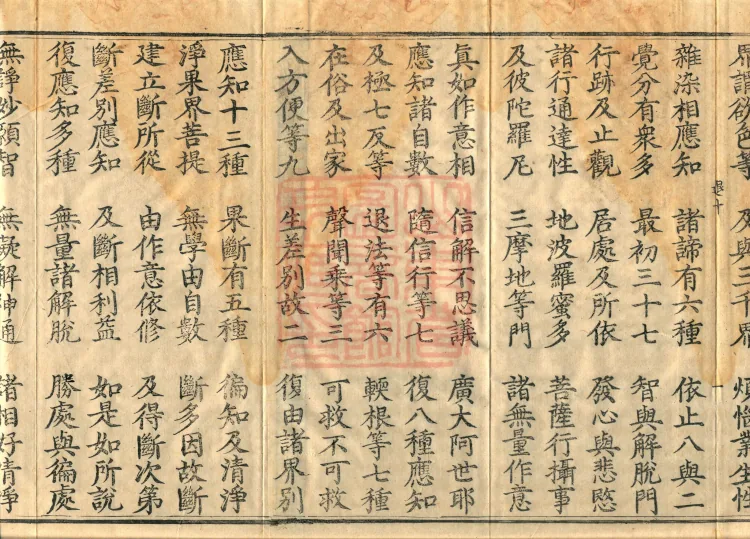 界諸欲色等 及與三千界 煩惱業生性
雜染相應知 諸諦有六種 依止八與二
覺分有衆多 最初三十七 智與解脫門
行跡及止觀 居處及所依 發心與悲愍
諸行通達性 地波羅蜜多 菩薩行攝事
及彼陀羅尼 三摩地等門 諸無量作意
眞如作意相 信解不思議 廣大阿世耶
應知諸自數 隨信行等七 復八種應知
及極七反等 退法等有六 軟根等七種
在俗及出家 聲聞乘等三 可救不可救
入方便等九 生差別故二 復由諸界別
應知十三種 果斷有五種 徧知及清淨
淨果界菩提 無學由自數 斷多因故斷
建立斷所從 由作意依修 及得斷次第
斷差別應知 及斷相利益 如是如所說
復應知多種 無量諸解脫 勝處與徧處
無諍妙願智 無礙解神通 諸相好清淨